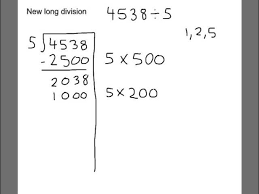 New long division 4538÷5
1,2,5
5 4538
-2500 5×500
2038
1000 5×200